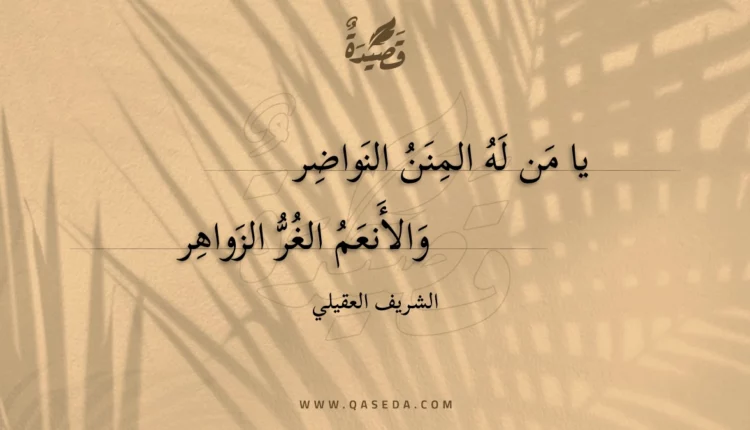 قَصِيْدَةٌ
يا مَن لَهُ المِنَنُ النَواضِر
وَالأَنعَمُ الغُرُّ الزَواهِر
الشريف العقيلي
WWW.QASEDA.COM